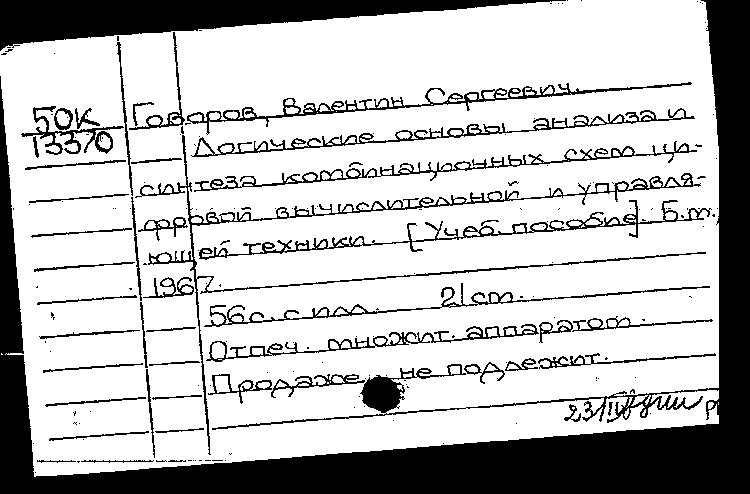 50К
13370
Говоров, Валентин Сергеевич.
Логические основы анализа и
синтеза комбинационных схем ци-
фровой вычислительной и управля-
ющей техники. [Учеб. пособие]. Б.м.,
1967.
56с. с илл. 21cm.
Отпеч. множит. аппаратом.
Продаже не подлежит.
23/IV